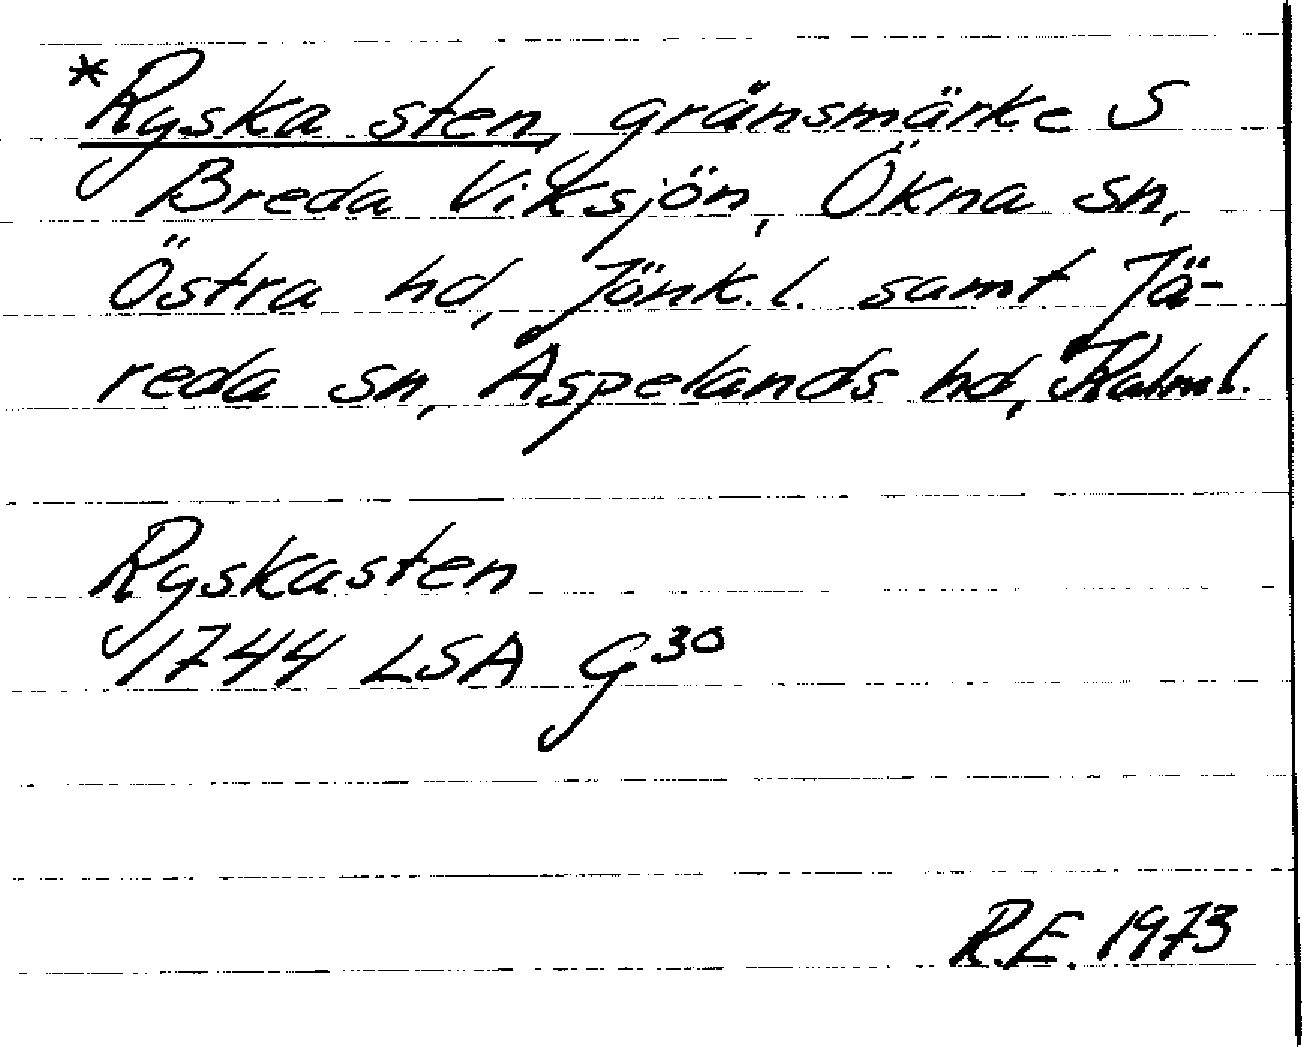 *Ryska sten, gränsmärke S
Breda Viksjön, Ökna sn,
Östra hd, Jönk. l. samt Jä-
reda sn, Aspelands hd, Kalm l.
Ryskasten
1744 LSA G³⁰
R.E. 1973